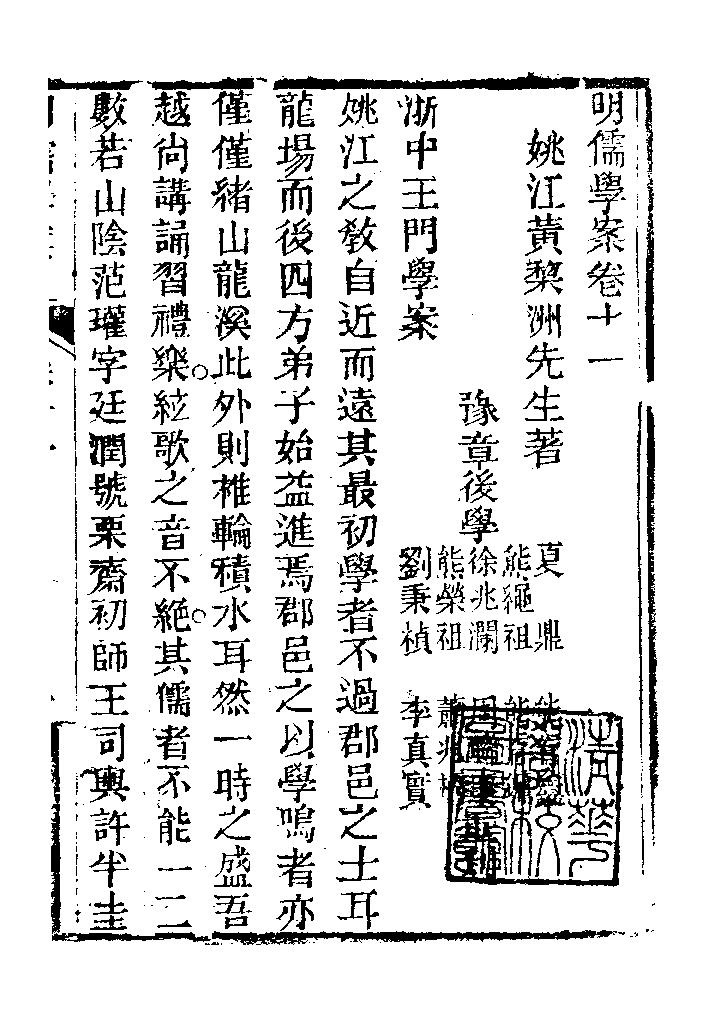 明儒學案卷十一
姚江黃棃洲先生著
豫章後學
夏鼎
熊繩祖
徐兆瀾
熊榮祖
劉秉楨
李真實
浙中王門學案
姚江之教自近而遠其最初學者不過郡邑之士耳
龍場而後四方弟子始益進焉郡邑之以學鳴者亦
僅僅緒山龍溪此外則椎輪積水耳然一時之盛吾
越尚講誦習禮樂絃歌之音不絕其儒者不能一二
數若山陰范瓘字廷潤號栗齋初師王司輿許半圭